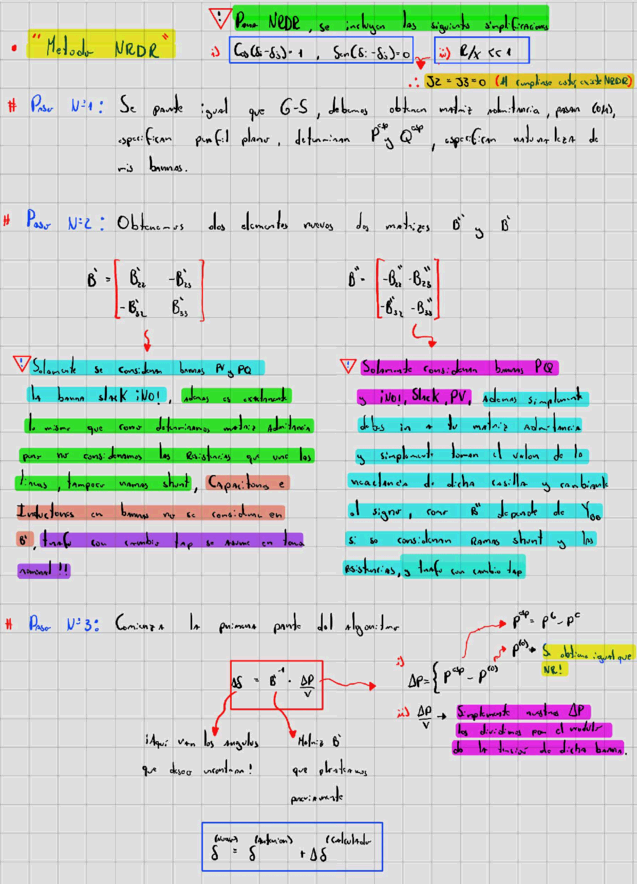 Para NRDR, se incluyen las siguiente simplificaciones
• "Metodo NRDR"
i) Cos(δi-δj)=1 , Sen(δi-δj)=0
ii) R/X << 1
∴ J2 = J3 = 0 (Al cumplirse esto, existe NRDR)
# Paso N=1: Se parte igual que G-S, debemos obtener matriz admitancia, pasar (0/1),
especificar perfil plano, determinar P^esp y Q^esp, especificar naturaleza de
mis barras.
# Paso N=2: Obtenemos dos elementos nuevos dos matrizes B'' y B'
B' = [ B'22 -B'23
-B'32 B'33 ]
B'' = [ -B''22 -B''23
-B''32 -B''33 ]
Solamente se consideran barras PV y PQ
la barra slack ¡NO!, ademas es exactamente
lo mismo que como determinamos matriz admitancia
pero no consideramos las Resistencias que une las
lineas, tampoco ramas shunt, Capacitores e
Inductores en barras no se consideran en
B', trafo con cambio tap se asume en toma
nominal!!
Solamente consideran barras PQ
y ¡NO!, Slack, PV, Ademas simplemente
debes ir a tu matriz admitancia
y simplemente toman el valor de la
reactancia de dicha casilla y cambiarle
el signo, como B'' depende de YBB
si se consideran Ramas shunt y las
resistencias, y trafo con cambio tap
# Paso N=3: Comienza la primera parte del algoritmo
P^esp = P^G - P^C
P^(0) → Se obtiene igual que
NR!
Δδ = B'^-1 · ΔP/V
i) ΔP = { P^esp - P^(0)
ii) ΔP/V → Simplemente nuestros ΔP
los dividimos por el modulo
de la tensión de dicha barra.
¡Aqui van los angulos
que deseo encontrar!
Matriz B'
que planteamos
previamente
δ^(nuevo) = δ^(anterior) + Δδ^(calculado)